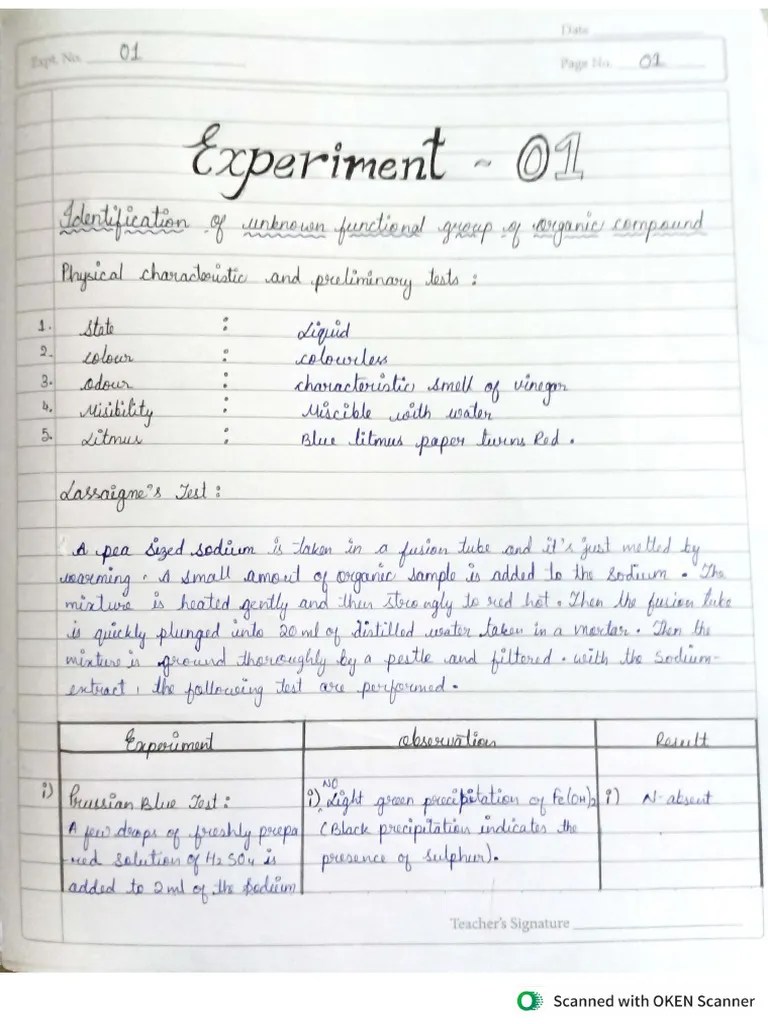 Date
Expt. No. 01
Page No. 01
Experiment - 01
Identification of unknown functional group of organic compound
Physical characteristic and preliminary tests :
1. State : Liquid
2. colour : colourless
3. odour : characteristic smell of vinegar
4. Misibility : Miscible with water
5. Litmus : Blue litmus paper turns Red.
Lassaigne's Test :
A pea sized sodium is taken in a fusion tube and it's just melted by
warming. A small amount of organic sample is added to the sodium. The
mixture is heated gently and then strongly to red hot. Then the fusion tube
is quickly plunged into 20 ml of distilled water taken in a mortar. Then the
mixture is ground thoroughly by a pestle and filtered. with the sodium-
extract, the following test are performed.
Experiment observation Result
NO
i) Prussian Blue Test : i) Light green precipitation of Fe(OH)2 i) N-absent
A few drops of freshly prepa (Black precipitation indicates the
-red solution of H2SO4 is presence of sulphur).
added to 2 ml of the sodium
Teacher's Signature
Scanned with OKEN Scanner